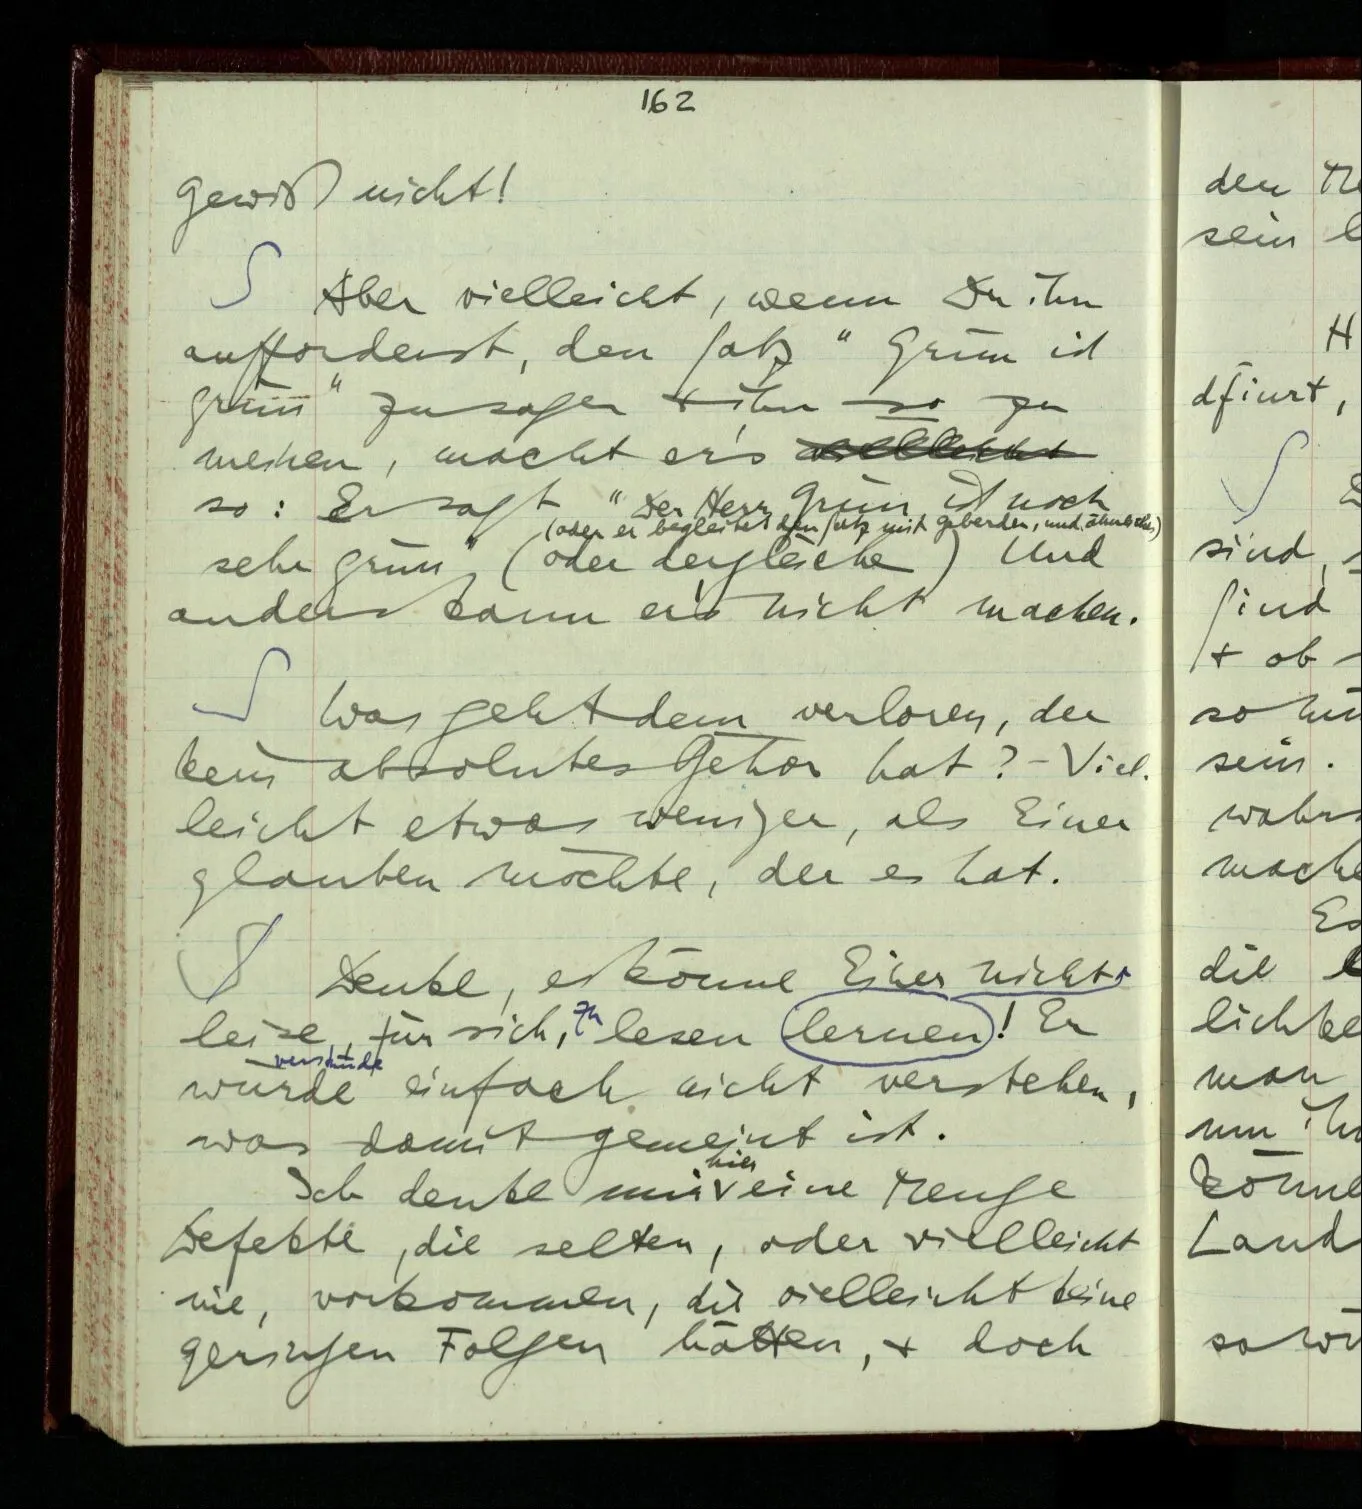 162
gewiß nicht!
Aber vielleicht, wenn Du ihn
aufforderst, den Satz "Grün ist
grün" zu sagen + ihn so zu
meinen, macht er's vielleicht
so: Er sagt "Der Herr Grün ist noch
(oder er begleitet den Satz mit Geberden, und ähnliches)
sehr grün" (oder dergleichen) Und
anders kann er's nicht machen.
Was geht dem verloren, der
kein absolutes Gehör hat? – Viel-
leicht etwas weniger, als Einer
glauben möchte, der es hat.
Denke, es könne Einer nicht
leise, für sich, zu lesen lernen! Er
verstünde
würde einfach nicht verstehen,
was damit gemeint ist.
hier
Ich denke mir eine Menge
Defekte, die selten, oder vielleicht
nie, vorkommen, die vielleicht keine
geringen Folgen hätten, + doch
den
sein
H
sind,
sind
+ ob
so
sein.
mache
Es
die
man
um
Land
so